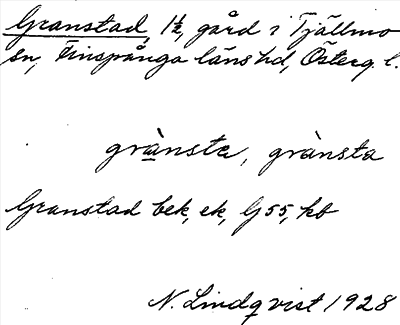 Granstad, 1½, gård i Tjällmo
sn, Finspånga läns hd, Österg. l.
grànsta, grànsta
Granstad bek, ek, G 55, kb
N. Lindqvist 1928